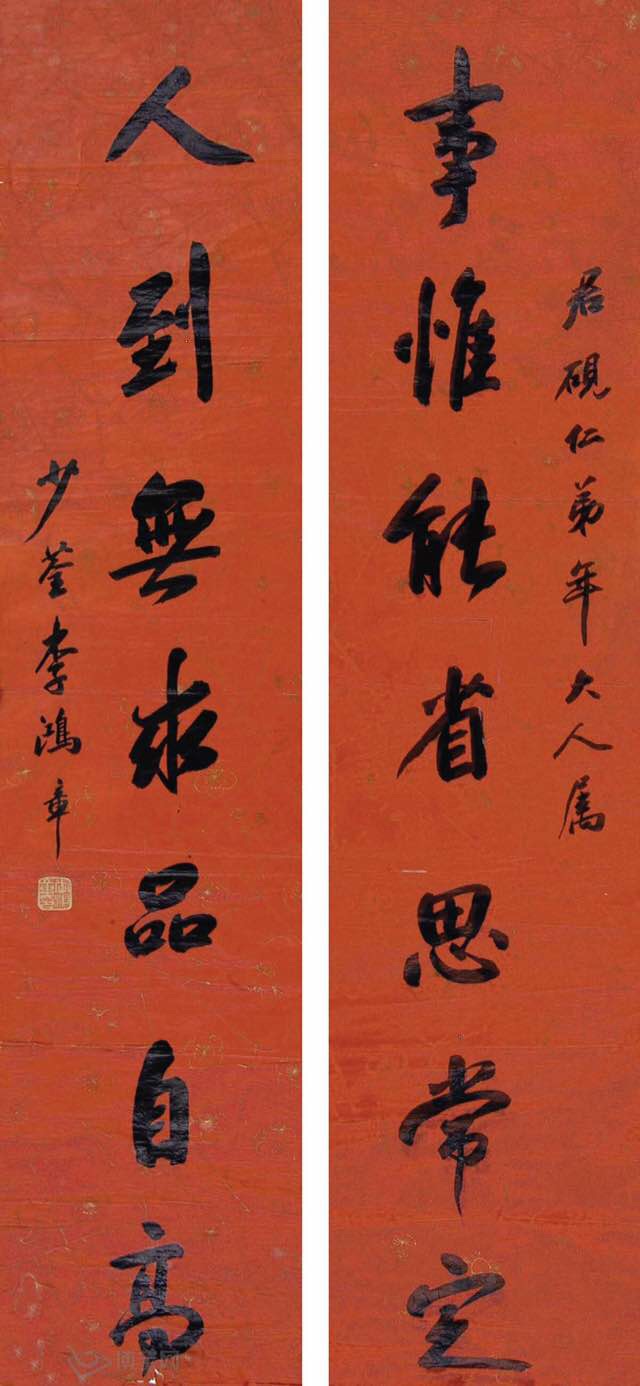 君硯仁弟年大人属
事惟能省思常定
人到無求品自高
少荃李鴻章